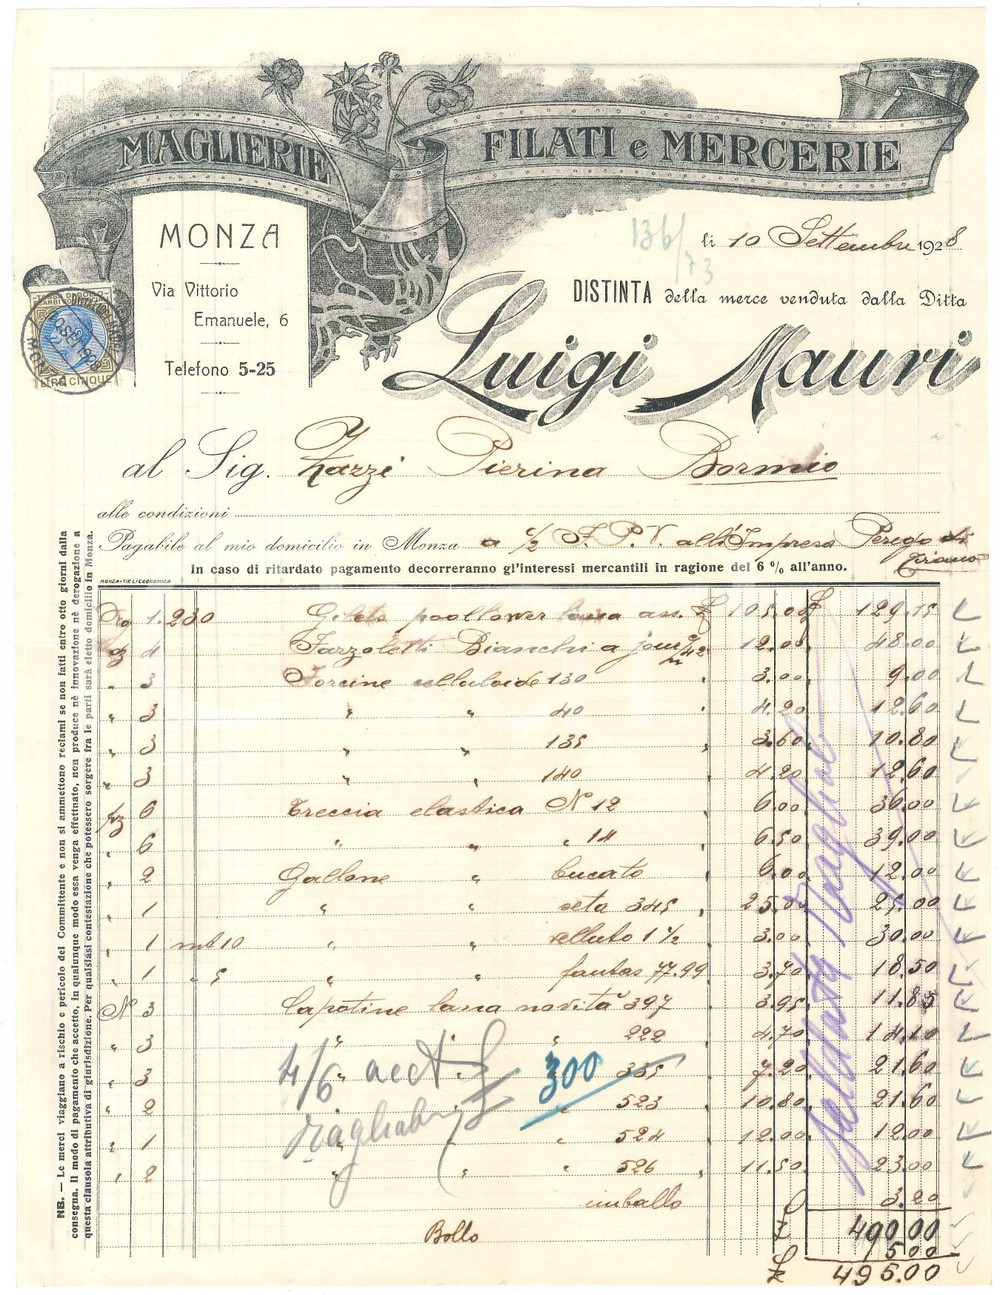 MAGLIERIE FILATI e MERCERIE
MONZA
Via Vittorio
Emanuele, 6
Telefono 5-25
136/73
li 10 Settembre 1928
DISTINTA della merce venduta dalla Ditta
Luigi Mauri
LIRE CINQUE
al Sig. Zazzi Pierina Bormio
alle condizioni
Pagabile al mio domicilio in Monza a 1/2 F. P. V. all'Impresa Perego di Tirano
In caso di ritardato pagamento decorreranno gl'interessi mercantili in ragione del 6 % all'anno.
MONZA-TIP. L'ECONOMICA
Kg 1.230 Gilets poollower lana ass. £ 105.00 £ 129.15
dz 4 Fazzoletti Bianchi a jour 42 12.00 48.00
" 3 Forcine celluloide 130 " 3.00 9.00
" 3 " " 40 " 4.20 12.60
" 3 " " 135 " 3.60 10.80
" 3 " " 140 " 4.20 12.60
pz 6 Treccia elastica N 12 " 6.00 36.00
" 6 " " " 14 " 6.50 39.00
" 2 Gallone " bucato " 6.00 12.00
" 1 " " seta 345 " 25.00 25.00
" 1 mt 10 " " velluto 1 1/2 " 3.00 30.00
" 1 " 5 " " fantas 77.99 " 3.70 18.50
N 3 Capotine lana novità 397 " 3.95 11.85
" 3 " " " 222 " 4.70 14.10
" 3 " " " 335 " 7.20 21.60
" 2 " " 523 " 10.80 21.60
" 1 " " 524 " 12.00 12.00
" 2 " " 526 " 11.50 23.00
imballo £ 3.20
£ 490.00
Bollo 5.00
£ 495.00
4/6 acct £ 300
NB. — Le merci viaggiano a rischio e pericolo del Committente e non si ammettono reclami se non fatti entro otto giorni dalla
consegna. Il modo di pagamento che accetto, in qualunque modo essa venga effettuato, non produce nè innovazione nè derogazione a
questa clausola attributiva di giurisdizione. Per qualsiasi contestazione che potessero sorgere fra le parti sarà eletto domicilio in Monza.